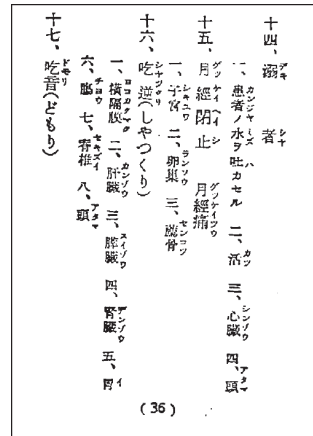 十四、溺者
一、患者ノ水ヲ吐カセル 二、活 三、心臓 四、頭
十五、月經閉止 月經痛
一、子宮 二、卵巣 三、薦骨
十六、吃逆(しやつくり)
一、横隔膜 二、肝臓 三、膵臓 四、腎臓 五、胃
六、腸 七、脊椎 八、頭
十七、吃音(どもり)
(36)